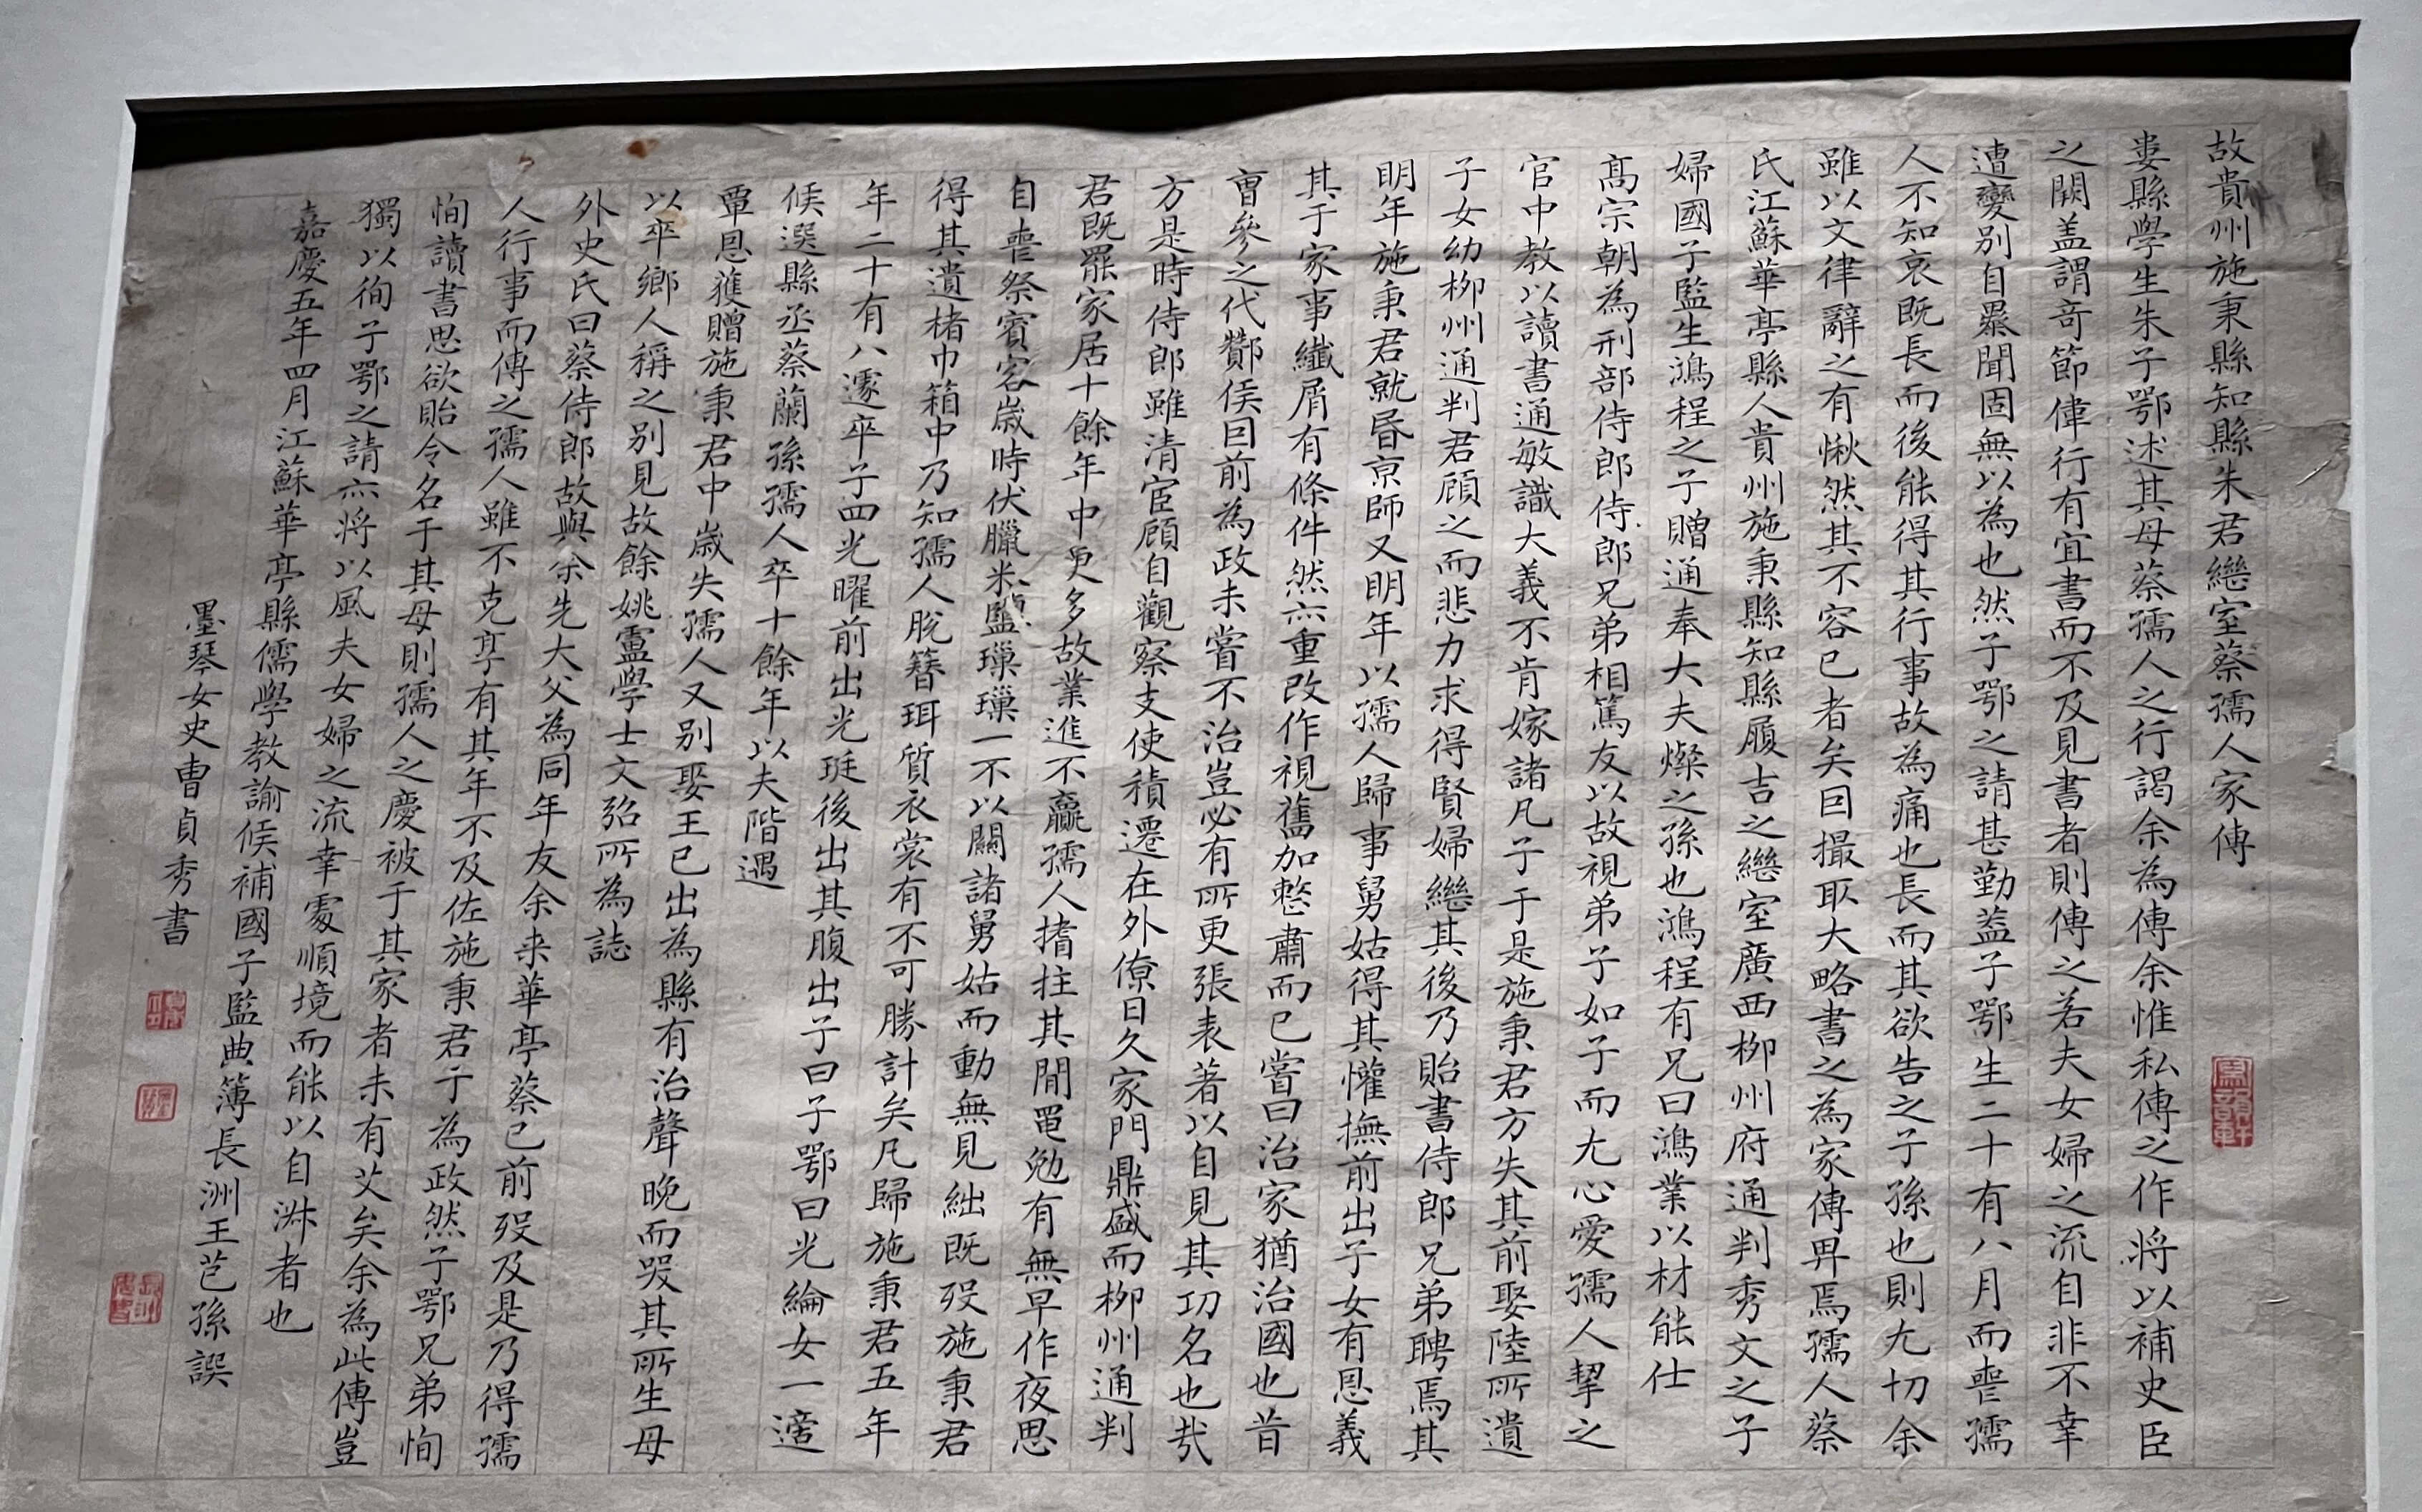 故貴州施秉縣知縣朱君繼室蔡孺人家傳
婁縣學生朱子鄂述其母蔡孺人之行謁余為傳余惟私傳之作將以補史臣
之闕盖謂奇節偉行有宜書而不及見書者則傳之若夫女婦之流自非不幸
遭變別自暴聞固無以為也然子鄂之請甚勤葢子鄂生二十有八月而喪孺
人不知哀既長而後能得其行事故為痛也長而其欲告之子孫也則尤切余
雖以文律辭之有愀然其不容已者矣因撮取大略書之為家傳畀焉孺人蔡
氏江蘇華亭縣人貴州施秉縣知縣履吉之繼室廣西柳州府通判秀文之子
婦國子監生鴻程之子贈通奉大夫燦之孫也鴻程有兄曰鴻業以材能仕
高宗朝為刑部侍郎侍郎兄弟相篤友以故視弟子如子而尤心愛孺人挈之
官中教以讀書通敏識大義不肯嫁諸凡子于是施秉君方失其前娶陸所遺
子女幼柳州通判君顧之而悲力求得賢婦繼其後乃貽書侍郎兄弟聘焉其
明年施秉君就昏京師又明年以孺人歸事舅姑得其懽撫前出子女有恩義
其于家事纖屑有條件然亦重改作視舊加整肅而已嘗曰治家猶治國也昔
曹參之代酇侯因前為政未嘗不治豈必有所更張表著以自見其功名也㢤
方是時侍郎雖清宦顧自觀察支使積遷在外僚日久家門鼎盛而柳州通判
君既罷家居十餘年中更多故業進不贏孺人撍拄其間黽勉有無早作夜思
自喪祭賓客歲時伏臘米鹽璅璅一不以關諸舅姑而動無見絀既歿施秉君
得其遺楮巾箱中乃知孺人脫簪珥質衣裳有不可勝計矣凡歸施秉君五年
年二十有八遽卒子四光曜前出光珽後出其腹出子曰子鄂曰光綸女一適
候選縣丞蔡蘭孫孺人卒十餘年以夫階遇
覃恩獲贈施秉君中歲失孺人又別娶王已出為縣有治聲晚而哭其所生母
以卒鄉人稱之別見故餘姚盧學士文弨所為誌
外史氏曰蔡侍郎故與余先大父為同年友余来華亭蔡已前歿及是乃得孺
人行事而傳之孺人雖不克享有其年不及佐施秉君于為政然子鄂兄弟恂
恂讀書思欲貽令名于其母則孺人之慶被于其家者未有艾矣余為此傳豈
獨以徇子鄂之請亦将以風夫女婦之流幸處順境而能以自淑者也
嘉慶五年四月江蘇華亭縣儒學教諭候補國子監典簿長洲王芑孫譔
墨琴女史曹貞秀書